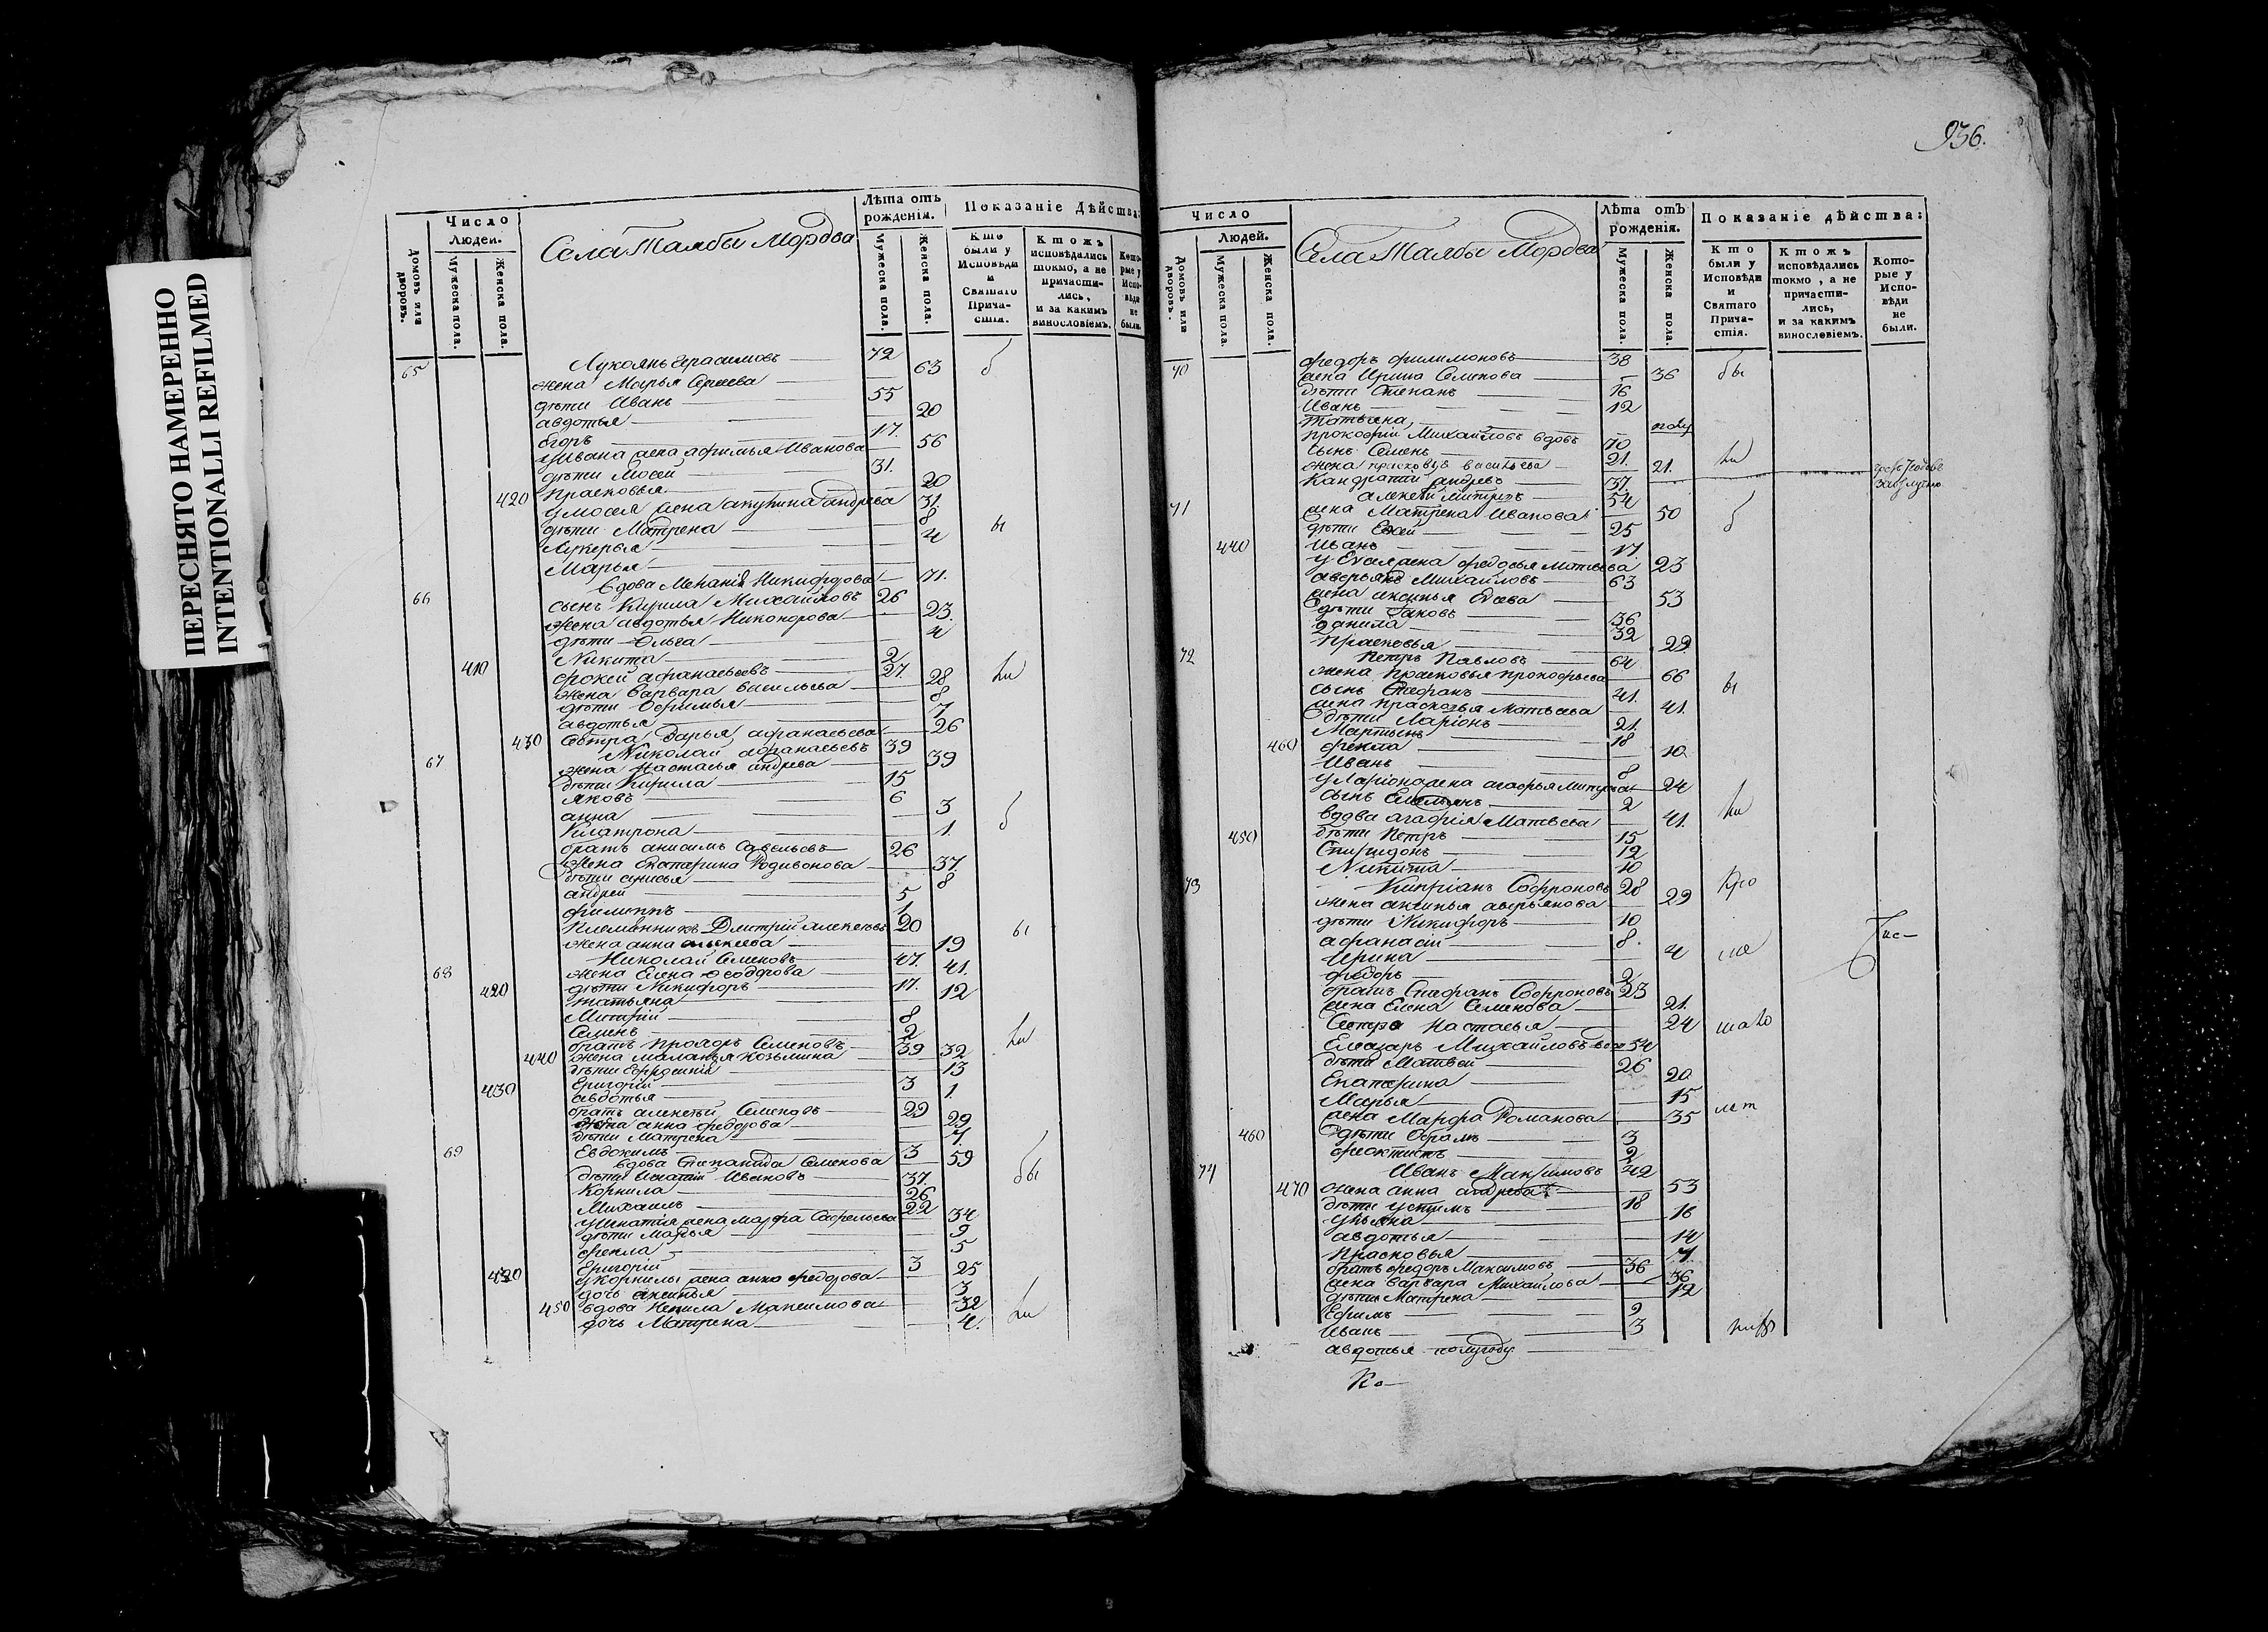 ПЕРЕСНЯТО НАМЕРЕННО
INTENTIONALLI REFILMED
Число
Людей.
Домовъ или дворовъ.
Мужеска пола.
Женска пола.
Села Талабы Мордва
Лѣта отъ рожденія.
Мужеска пола.
Женска пола.
Показаніе Дѣйства:
Кто были у Исповѣди и Святаго Причастія.
Ктожъ исповѣдались токмо, а не причастились, и за какимъ винословіемъ.
Которые у Исповѣди не были.
65 Лукоянъ Герасимовъ 72
жена Марья Сергеева 63
дѣти Иванъ 55
авдотья 20
Егоръ 17.
у Ивана жена афимья Иванова 56
дѣти Мосей 31.
Прасковья 20
420 у мосея жена акулина андрева 31.
дѣти Матрена 8
Лукерья 4
Марья
66 вдова Меланія Никифорова 71.
сынъ Кирила Михайловъ 26
жена авдотья Никонорова 23.
дѣти Ольга 4
Никита 2
410 фокей афанасьевъ 27.
жена Варвара васильева 28
дѣти Ефимья 8
авдотья 7
430 Сестра Дарья афанасьева 26
67 Николай афанасьевъ 39
жена Настасья андрева 39
дѣти Кирила 15
яковъ 6
анна 3
1.
братъ анисимъ Савельевъ 26
жена Екатерина Родивонова 37.
дѣти 8
андрей 5
филиппъ 1
Племянникъ Дмитрій алексѣевъ 20
жена анна алексеева 19
68 Николай Семеновъ 47.
жена Елена Феодорова 41.
420 дѣти Никифоръ 17.
татьяна 12
Митрій 8
Семенъ 2
братъ прохоръ Семеновъ 39
440 жена маланья козьмина 32
дѣти Ефросинія 13
430 Григорій 3
авдотья 1
братъ алексѣй Семеновъ 29
жена анна федорова 29
дѣти Матрена 7.
Евдокимъ 3
69 вдова Степанида Семенова 59
дѣти Игнатій Ивановъ 37.
Корнила 26
Михаилъ 22
у Игнатія жена марфа Савельева 34
дѣти Марья 9
фекла 5
Григорій 3
у корнилы жена анна федорова 25
дочь аксинья 3
450 вдова Ненила Максимова 32
дочь Матрена 4.
936.
Число
Людей.
Домовъ или дворовъ.
Мужеска пола.
Женска пола.
Села Талабы Мордва
Лѣта отъ рожденія.
Мужеска пола.
Женска пола.
Показаніе дѣйства:
Кто были у Исповѣди и Святаго Причастія.
Ктожъ исповѣдались токмо, а не причастились, и за какимъ винословіемъ.
Которые у Исповѣди не были.
70 федоръ филимоновъ 38
жена Ирина Семенова 36
дѣти Степанъ 16
Иванъ 12
Татьяна,
прокофій Михайловъ вдовъ 70
сынъ Семенъ 21.
жена прасковья васильева 21.
Кандратій андревъ 37.
71 алексѣй митревъ 54
жена Матрена Иванова 50
дѣти 25
440 Иванъ 17.
23
аверьянъ Михайловъ 63
жена аксинья 53
дѣти яковъ 36
данила 32
Прасковья 29.
72 Петръ Павловъ 64
жена Прасковья прокофьева 66
сынъ Стефанъ 41.
жена прасковья Матвѣева 41.
дѣти Ларіонъ 21.
Мартынъ 18
460 фекла 10.
Иванъ 8
у Ларіона жена агафья митрева 24
сынъ Емельянъ 2
вдова агафія Матвѣева 41.
450 дѣти Петръ 15
Спиридонъ 12
Никита 10
73 Кипріанъ Софроновъ 28
жена аксинья аверьянова 29
дѣти Никифоръ 10
афанасій 8.
Ирина 4
федоръ 2
братъ Стефанъ Софроновъ 23
жена Елена Семенова 21.
Сестра настасья 24
Елеазаръ Михайловъ 54
дѣти Матвей 26
Екатерина 20
Марья 15
жена Марфа Романова 35
460 дѣти 3
феоктистъ 2
74 Иванъ Максимовъ 42
470 жена анна андрева 53
дѣти устимъ 18
ульяна 16
авдотья 14
Прасковья 7.
братъ федоръ Максимовъ 36
жена варвара Михайлова 36
дѣти Матрена 12
Ефимъ 9
Иванъ 3
авдотья полугоду
Ко